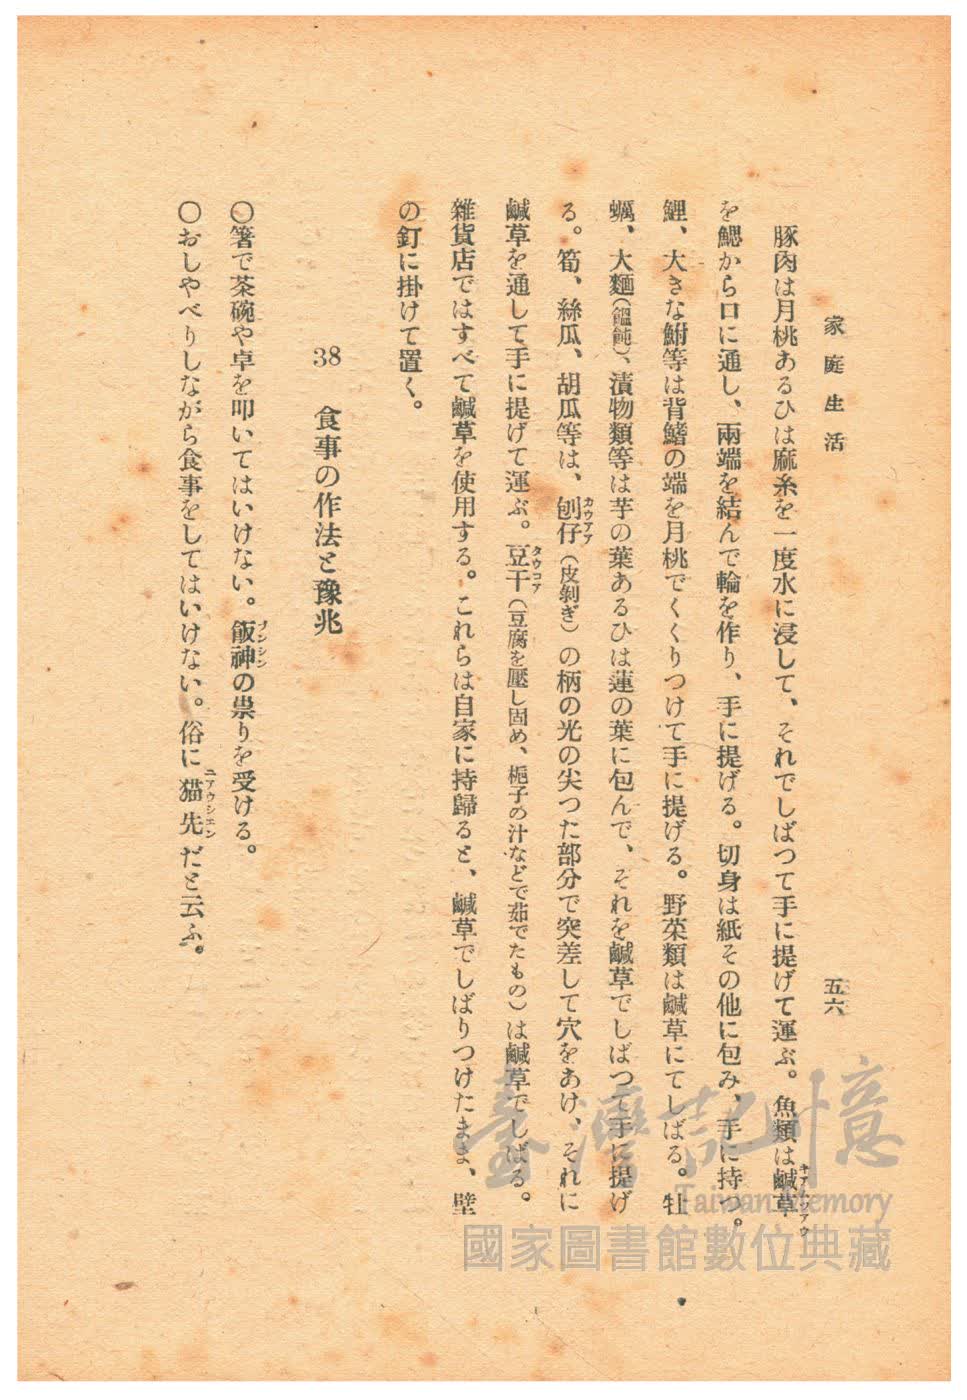 家庭生活
五六
豚肉は月桃あるひは麻糸を一度水に浸して、それでしばつて手に提げて運ぶ。魚類は鹹草
キアムツアウ
を鰓から口に通し、兩端を結んで輪を作り、手に提げる。切身は紙その他に包み、手に持つ。
鯉、大きな鮒等は背鰭の端を月桃でくくりつけて手に提げる。野菜類は鹹草にてしばる。牡
蠣、大麵(饂飩)、漬物類等は芋の葉あるひは蓮の葉に包んで、それを鹹草でしばつて手に提げ
る。筍、絲瓜、胡瓜等は、刨仔(皮剝ぎ)の柄の光の尖つた部分で突差して穴をあけ、それに
カウアア
鹹草を通して手に提げて運ぶ。豆干(豆腐を壓し固め、梔子の汁などで茹でたもの)は鹹草でしばる。
タウコア
雜貨店ではすべて鹹草を使用する。これらは自家に持歸ると、鹹草でしばりつけたまま、壁
の釘に掛けて置く。
38 食事の作法と豫兆
〇箸で茶碗や卓を叩いてはいけない。飯神の祟りを受ける。
プンシン
〇おしやべりしながら食事をしてはいけない。俗に猫先だと云ふ。
ニアウシエン
臺灣記憶
Taiwan Memory
國家圖書館數位典藏